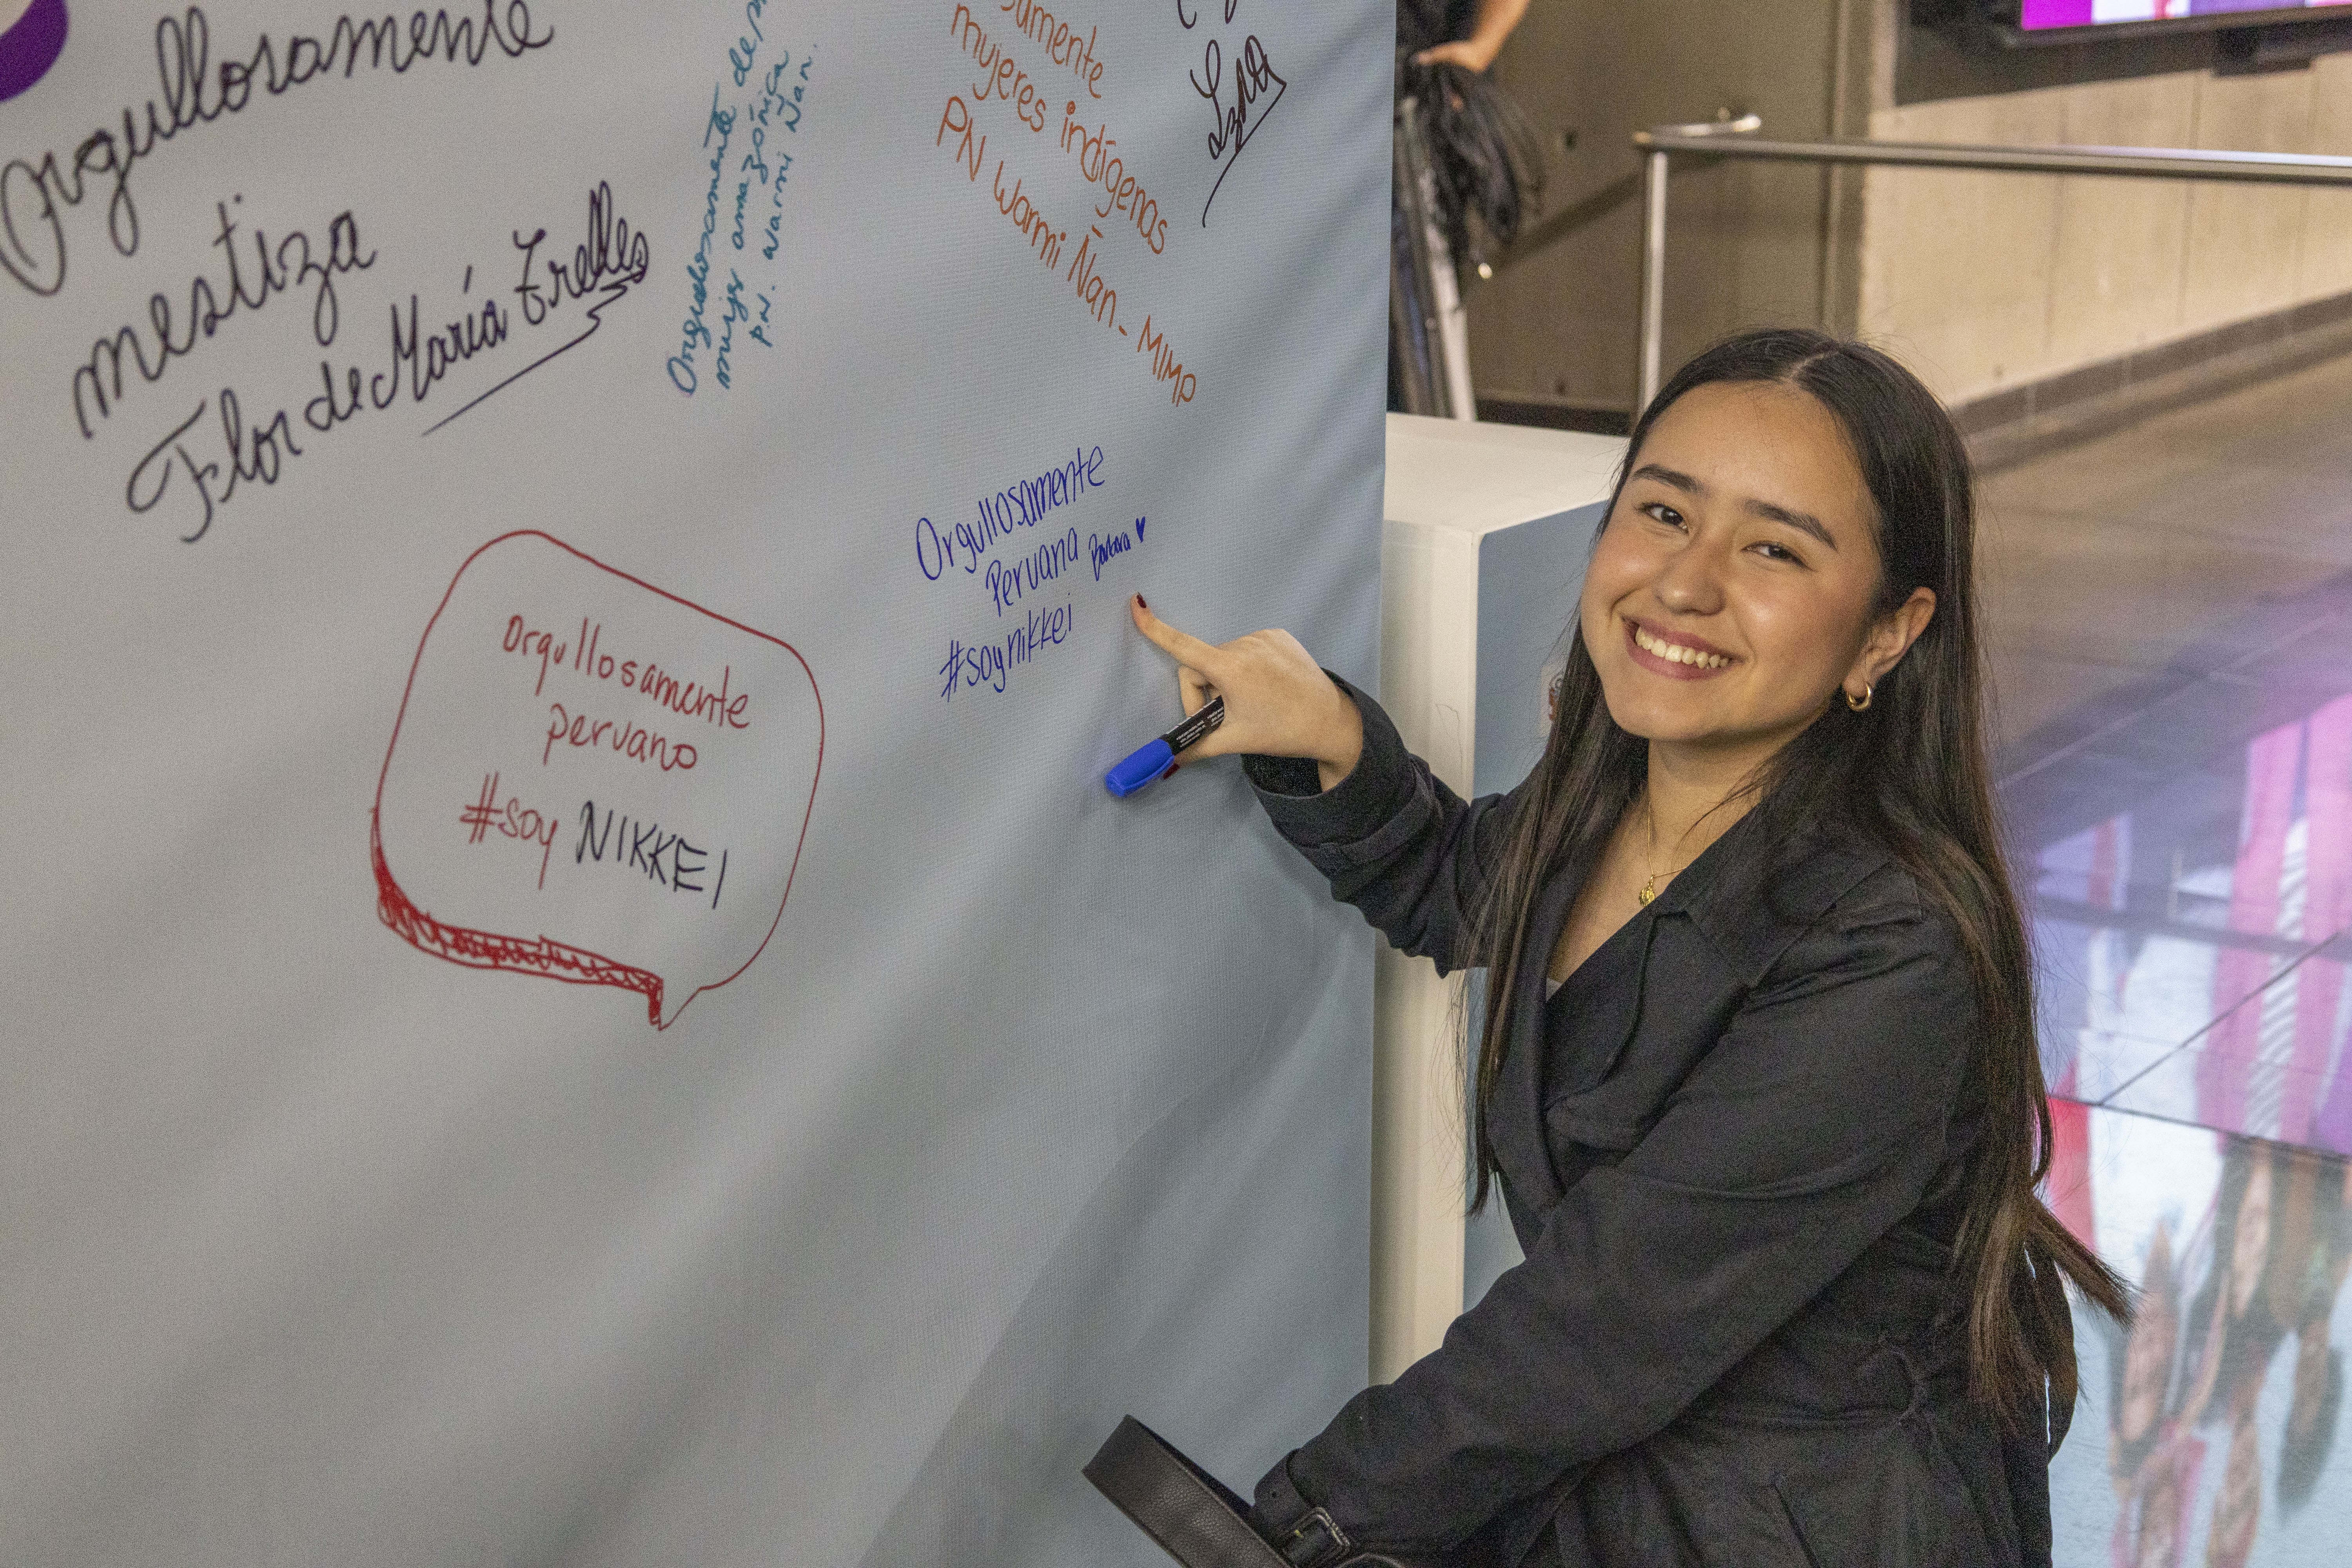 Orgullosamente
mestiza
Flor de María Trelles
Orgullosamente de
mujer amazónica
P.N. Warmi Ñan.
samente
mujeres indígenas
PN Warmi Ñan - MIMP
Orgullosamente
Peruana Bárbara ♥
#soynikkei
Orgullosamente
peruano
#soy NIKKEI